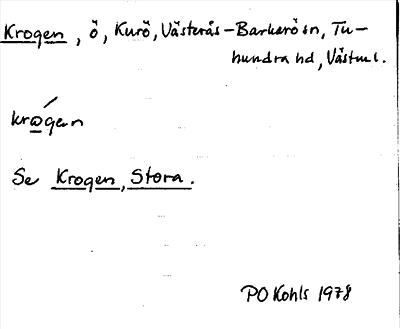 Krogen, ö, Kurö, Västerås-Barkarö sn, Tu-
hundra hd, Västml.
krógen
Se Krogen, Stora.
PO Kohls 1978